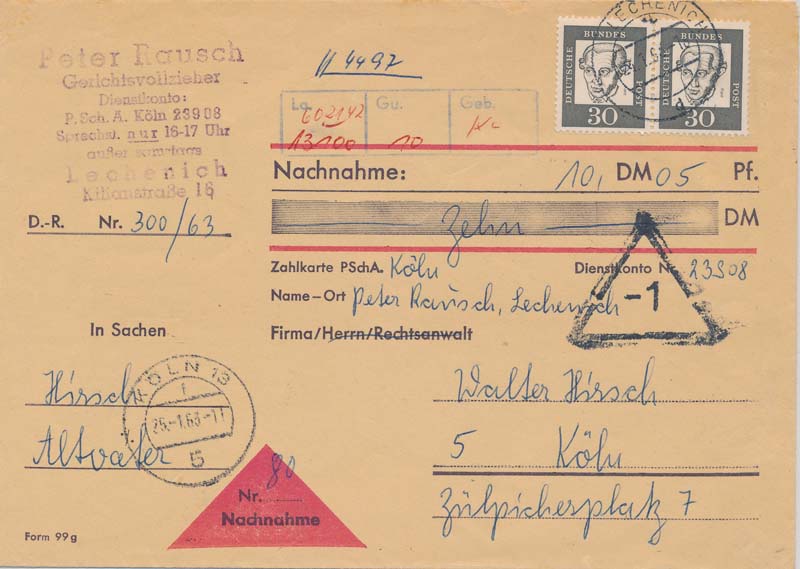 Peter Rausch
Gerichtsvollzieher
Dienstkonto:
P. Sch. A. Köln 23908
Sprechst. nur 16-17 Uhr
außer samstags
Lechenich
Kilianstraße 16
D.-R. Nr. 300/63
4497
Gu. Geb.
602142
13100 10
LECHENICH
DEUTSCHE BUNDES POST
30
DEUTSCHE BUNDES POST
30
Nachnahme: 10, DM 05 Pf.
Zehn DM
Zahlkarte PSchA. Köln Dienstkonto Nr. 23908
Name-Ort Peter Rausch, Lechenich
-1
Firma/Herrn/Rechtsanwalt
In Sachen
Hirsch
Altvater
KÖLN 13
25.-1.63-11
5
Walter Hirsch
5 Köln
Zülpicherplatz 7
Nr. 80
Nachnahme
Form 99g